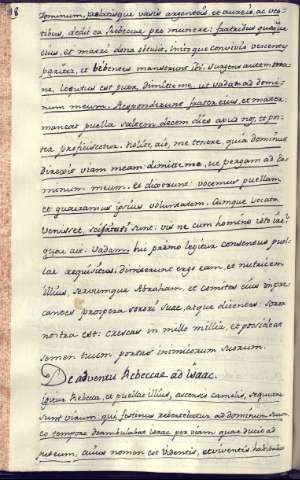 18
Dominum, prolatisque vasis argenteis, et aureis, ac ves-
tibus, dedit ea Rebeccae pro munere: fratribus quoque
eius, et matri dona obtulit. Initoque convivio vescentes
pariter, et bibentes manserunt ibi. Surgens autem ma-
ne, locutus est puer: dimitte me, ut vadam ad domi-
num meum. Responderunt fratres eius, et mater:
maneat puella saltem decem dies apud nos, et pos-
tea proficiscetur. Nolite, ait, me tenere, quia dominus
direxit viam meam: dimitte me, ut pergam ad do-
minum meum. et dixerunt: vocemus puellam,
et quaeramus ipsius voluntatem. Cumque vocata
venisset, sciscitati sunt: vis ire cum homine isto? ae
quae ait: Vadam. hic primo legitur consensus puel-
lae requisitus, dimiserunt ergo eam, et nutricem
illius, servumque Abraham, et comites eius impre-
cantes prospera sorori suae, atque dicentes: soror
nostra est: crescas in mille millia, et possideat
semen tuum portas inimicorum suorum.
De adventu Rebeccae ad Isaac.
Igitur Rebecca, et puellae illius, ascensis camelis, sequutae
sunt virum: qui festinus revertebatur ad dominum suum
eo tempore deambulabat Isaac per viam quae ducit ad
puteum, cuius nomen est videntis, et viventis habitabat